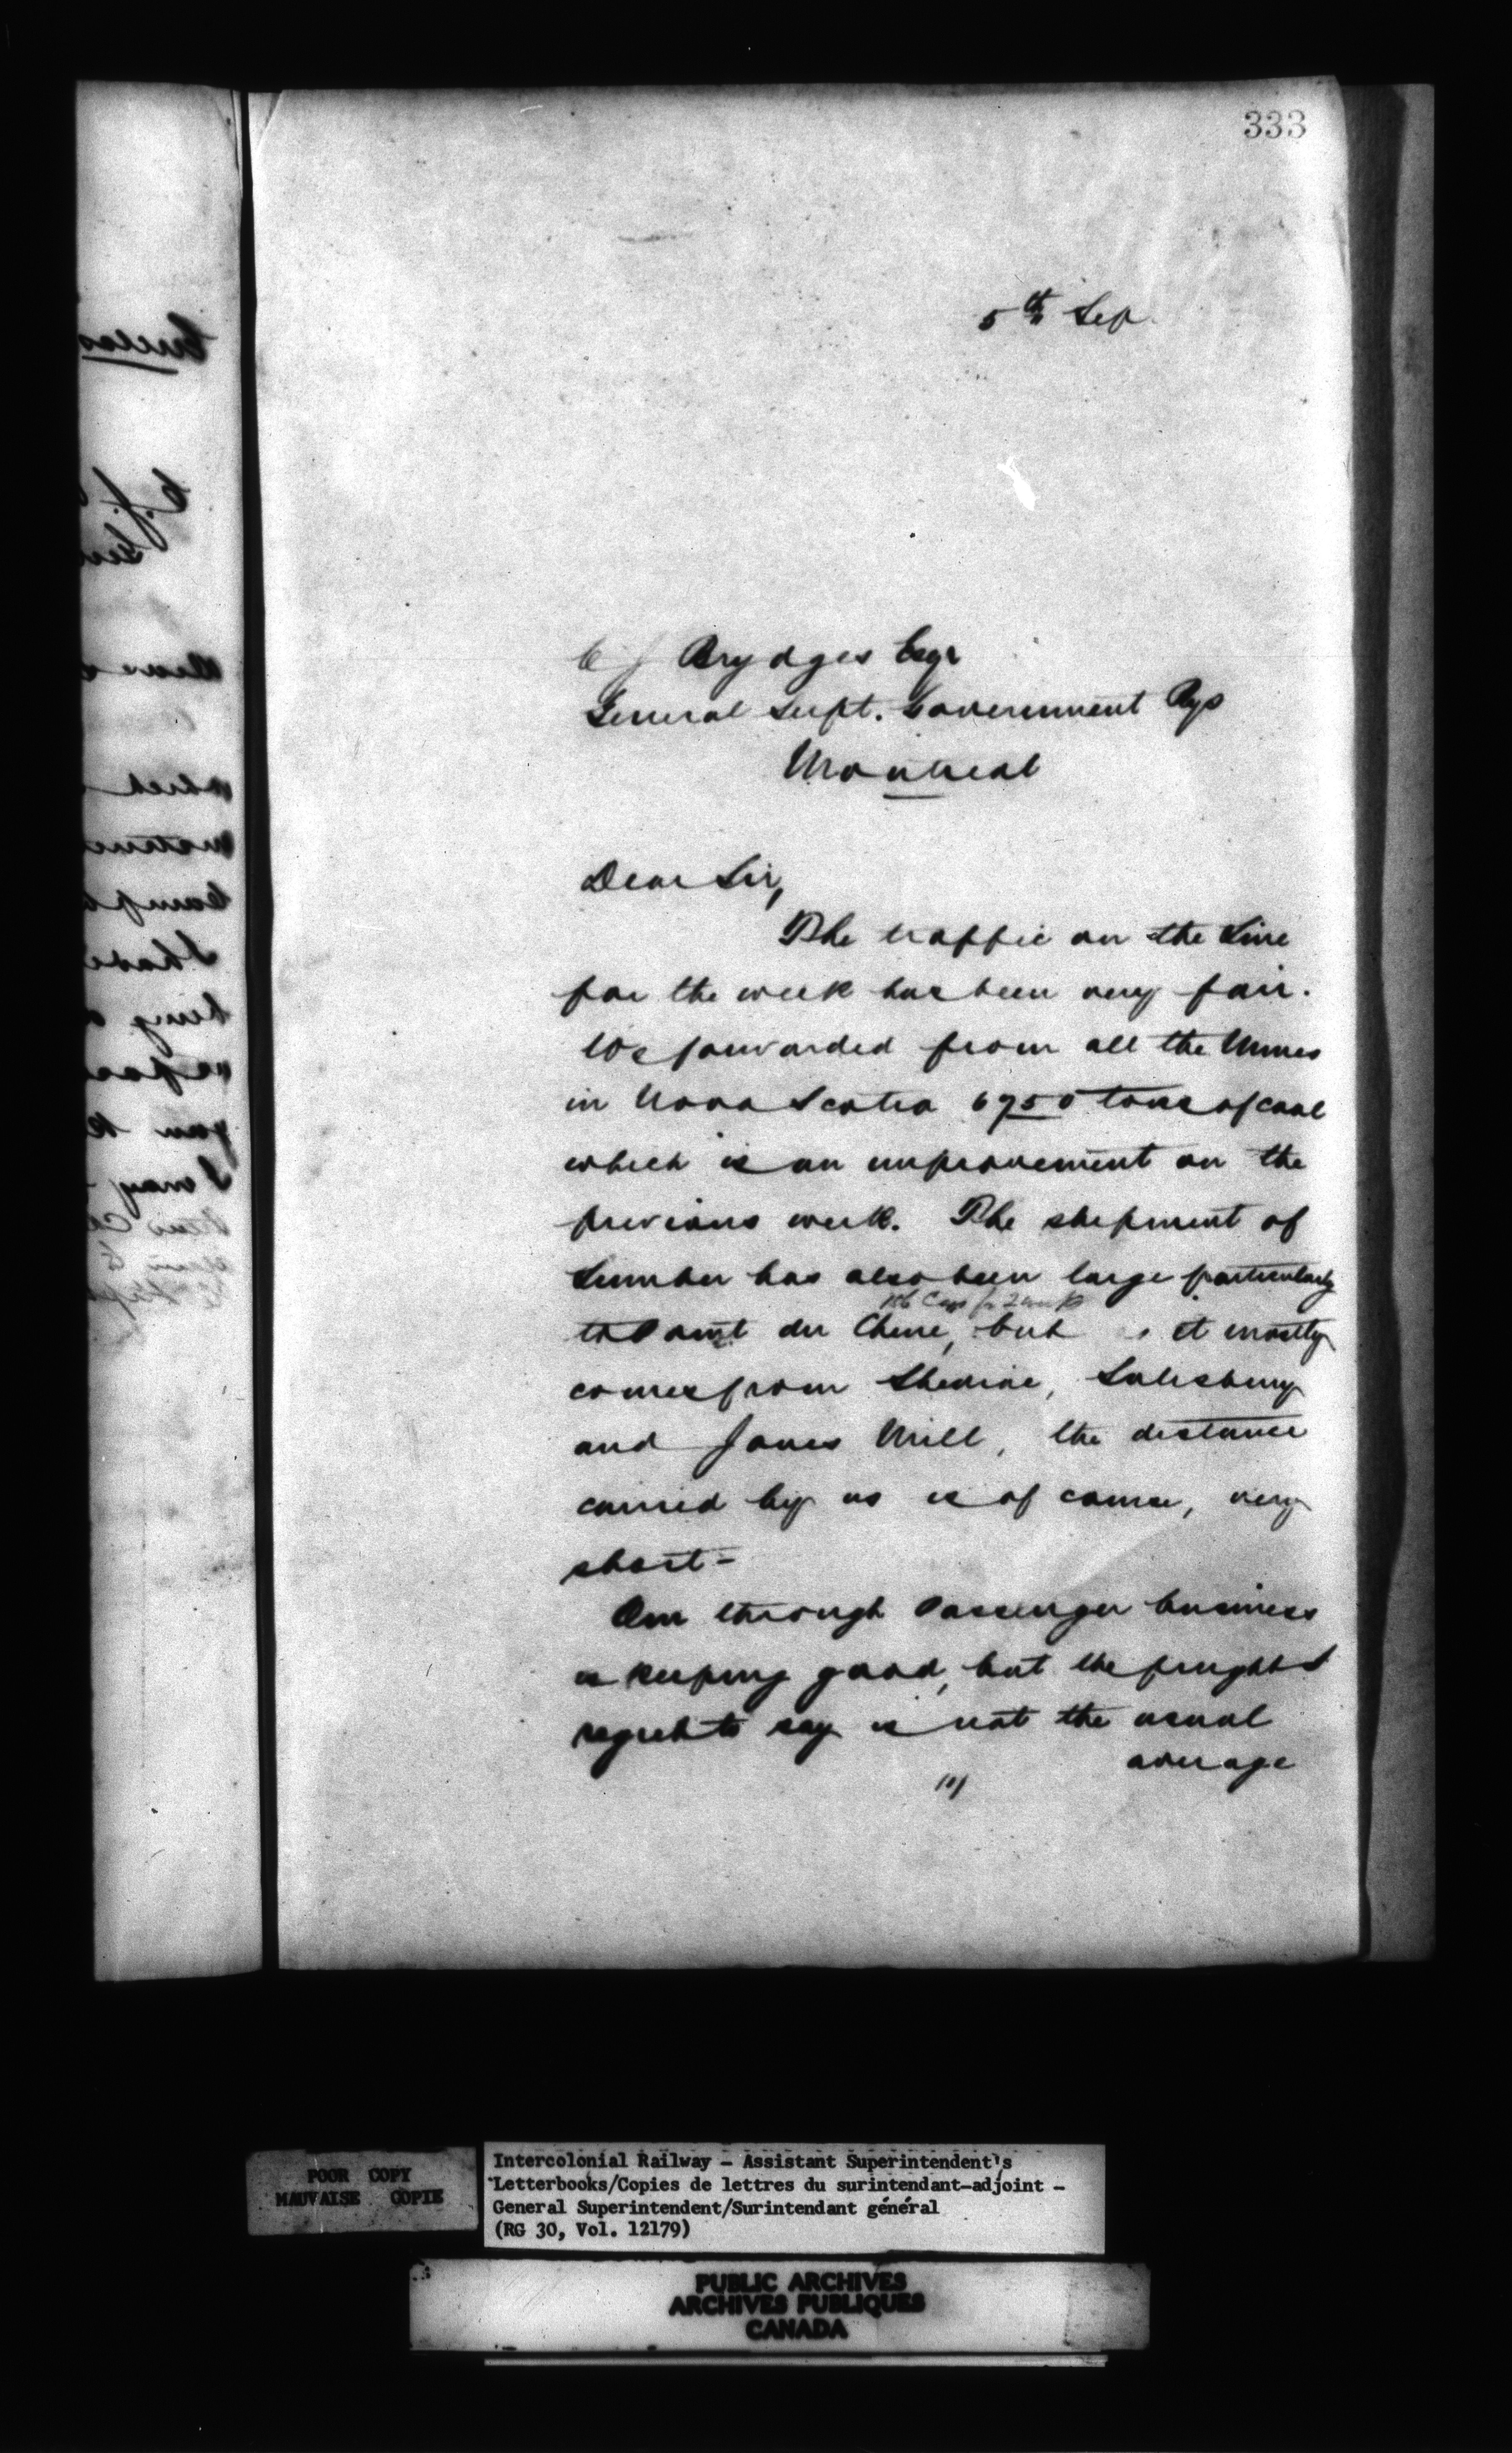 333
5th Sep.
C J Brydges Esqr
General Supt. Government Rys
Montreal
Dear Sir,
The traffic on the Line
for the week has been very fair.
We forwarded from all the Mines
in Nova Scotia 6750 tons of coal
which is an improvement on the
previous week. The shipment of
Lumber has also been large particularly
Cars for 2 weeks
to Point du Chene, but it mostly
comes from Shediac, Salisbury
and Jones Mill, the distance
carried by us is of course, very
short-
Our through Passenger business
is keeping good, but the freight I
regret to say is not the usual
average
POOR COPY
MAUVAISE COPIE
Intercolonial Railway - Assistant Superintendent's
Letterbooks/Copies de lettres du surintendant-adjoint -
General Superintendent/Surintendant général
(RG 30, Vol. 12179)
PUBLIC ARCHIVES
ARCHIVES PUBLIQUES
CANADA